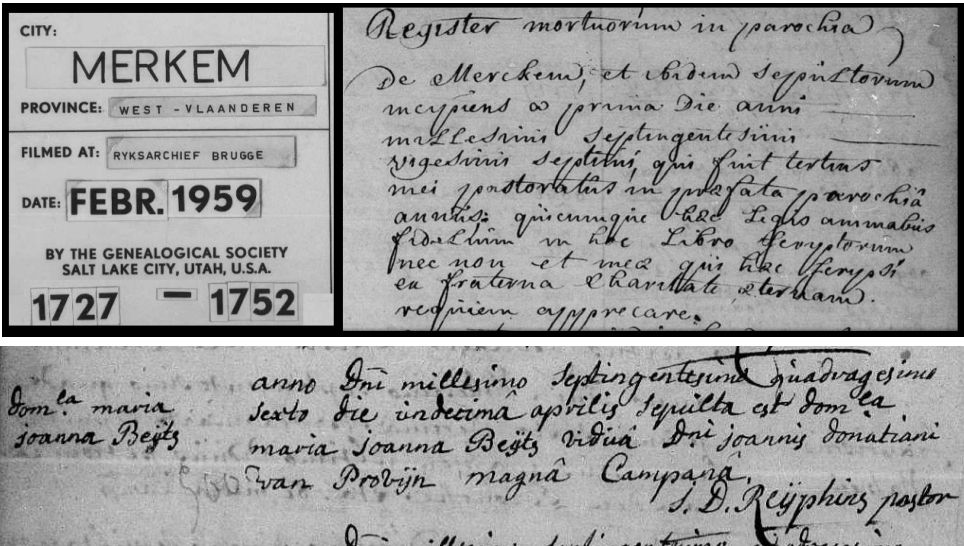 CITY:
MERKEM
PROVINCE: WEST-VLAANDEREN
FILMED AT: RYKSARCHIEF BRUGGE
DATE: FEBR. 1959
BY THE GENEALOGICAL SOCIETY
SALT LAKE CITY, UTAH, U.S.A.
1727 — 1752
Register mortuorum in parochia
de Merckem, et ibidem sepultorum
incipiens a prima die anni
millesimi septingentesimi
vigesimi septimi, qui fuit tertius
mei pastoratûs in præfata parochiâ
annus: quicumque hæc legis animabus
fidelium in hoc Libro scryptorum
nec non et meæ qui hæc scrypsi
ea fraterna Charitate æternam.
requiem apprecare.
anno Dni millesimo septingentesimo quadragesimo
dom.la maria
joanna Beÿts
sexto die undecimâ aprilis sepulta est dom.la
maria joanna Beÿts viduâ Dni joannis donatiani
van Provijn magnâ Campanâ.
J. D. Reÿphins pastor